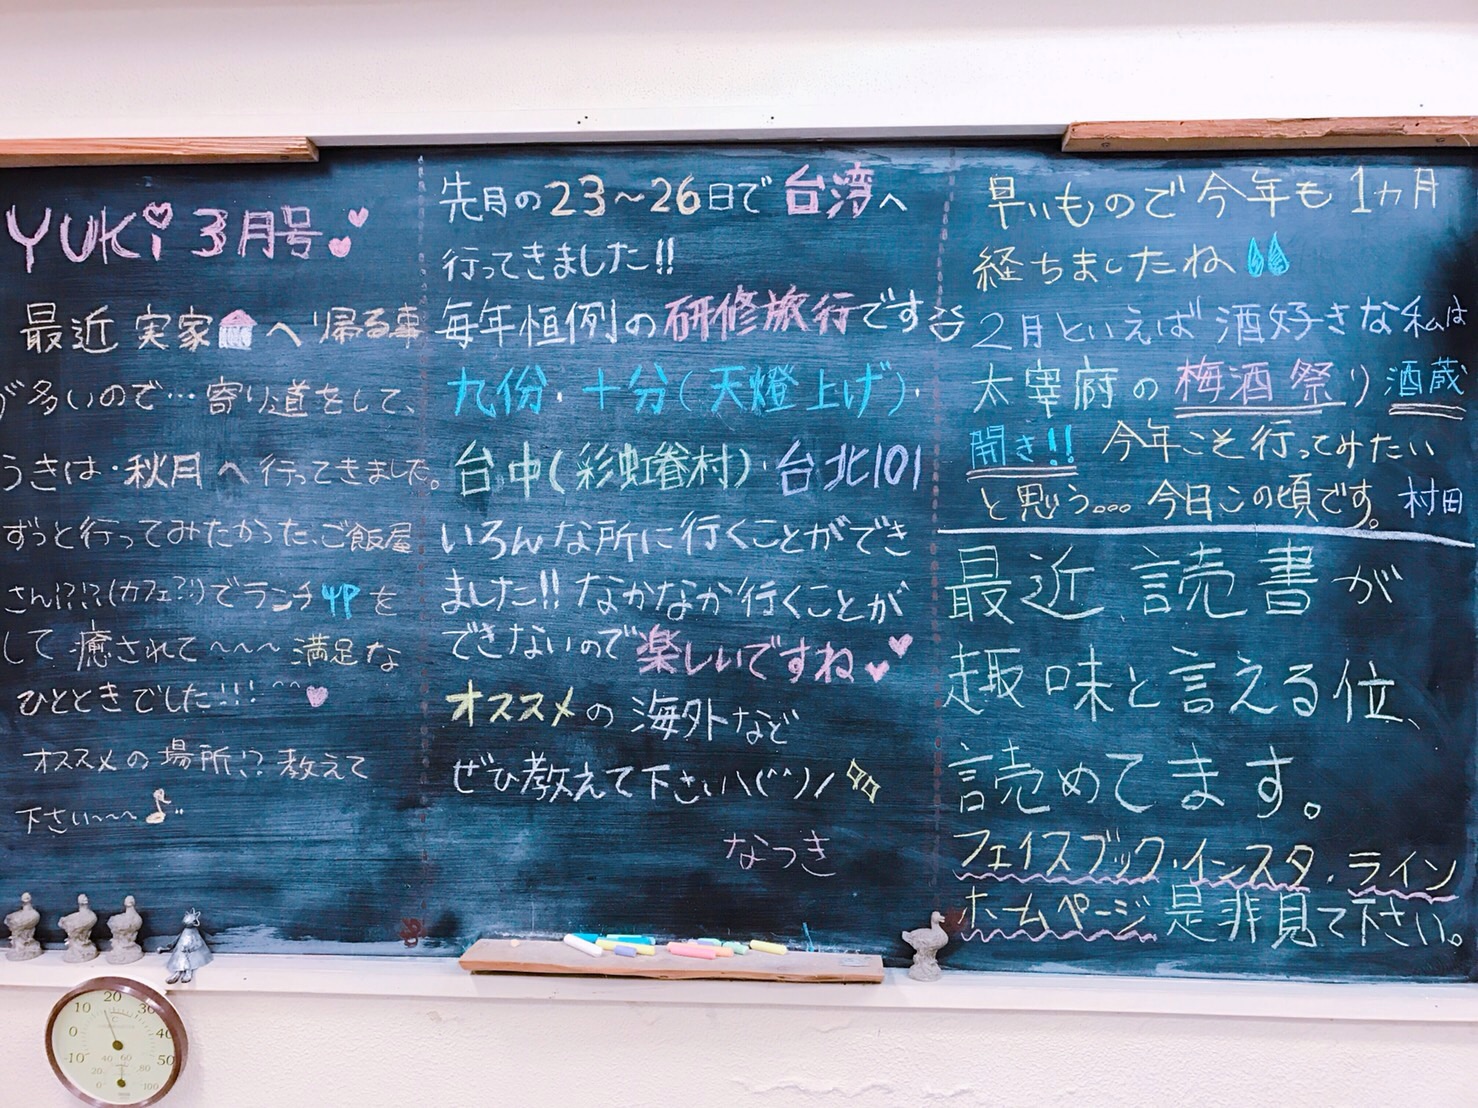 YUKi 3月号
最近 実家へ帰る事
が多いので…寄り道をして、
うきは・秋月へ行ってきました。
ずっと行ってみたかった、ご飯屋
さん!?!?(カフェ?!)でランチを
して 癒されて〜〜〜 満足な
ひとときでした!!! ^^
オススメの場所!? 教えて
下さい〜〜〜♪
先月の23〜26日で台湾へ
行ってきました!!
毎年恒例の研修旅行です
九份・十分(天燈上げ)・
台中(彩虹眷村)・台北101
いろんな所に行くことができ
ました!! なかなか行くことが
できないので楽しいですね
オススメの海外など
ぜひ教えて下さい\(^^)/
なつき
早いもので今年も1カ月
経ちましたね
2月といえば酒好きな私は
太宰府の梅酒祭り酒蔵
開き!! 今年こそ行ってみたい
と思う... 今日この頃です。 村田
最近、読書が
趣味と言える位、
読めてます。
フェイスブック・インスタ・ライン
ホームページ是非見て下さい。
10 20 30
0 40
-10 50
40 60
20 80
0 100